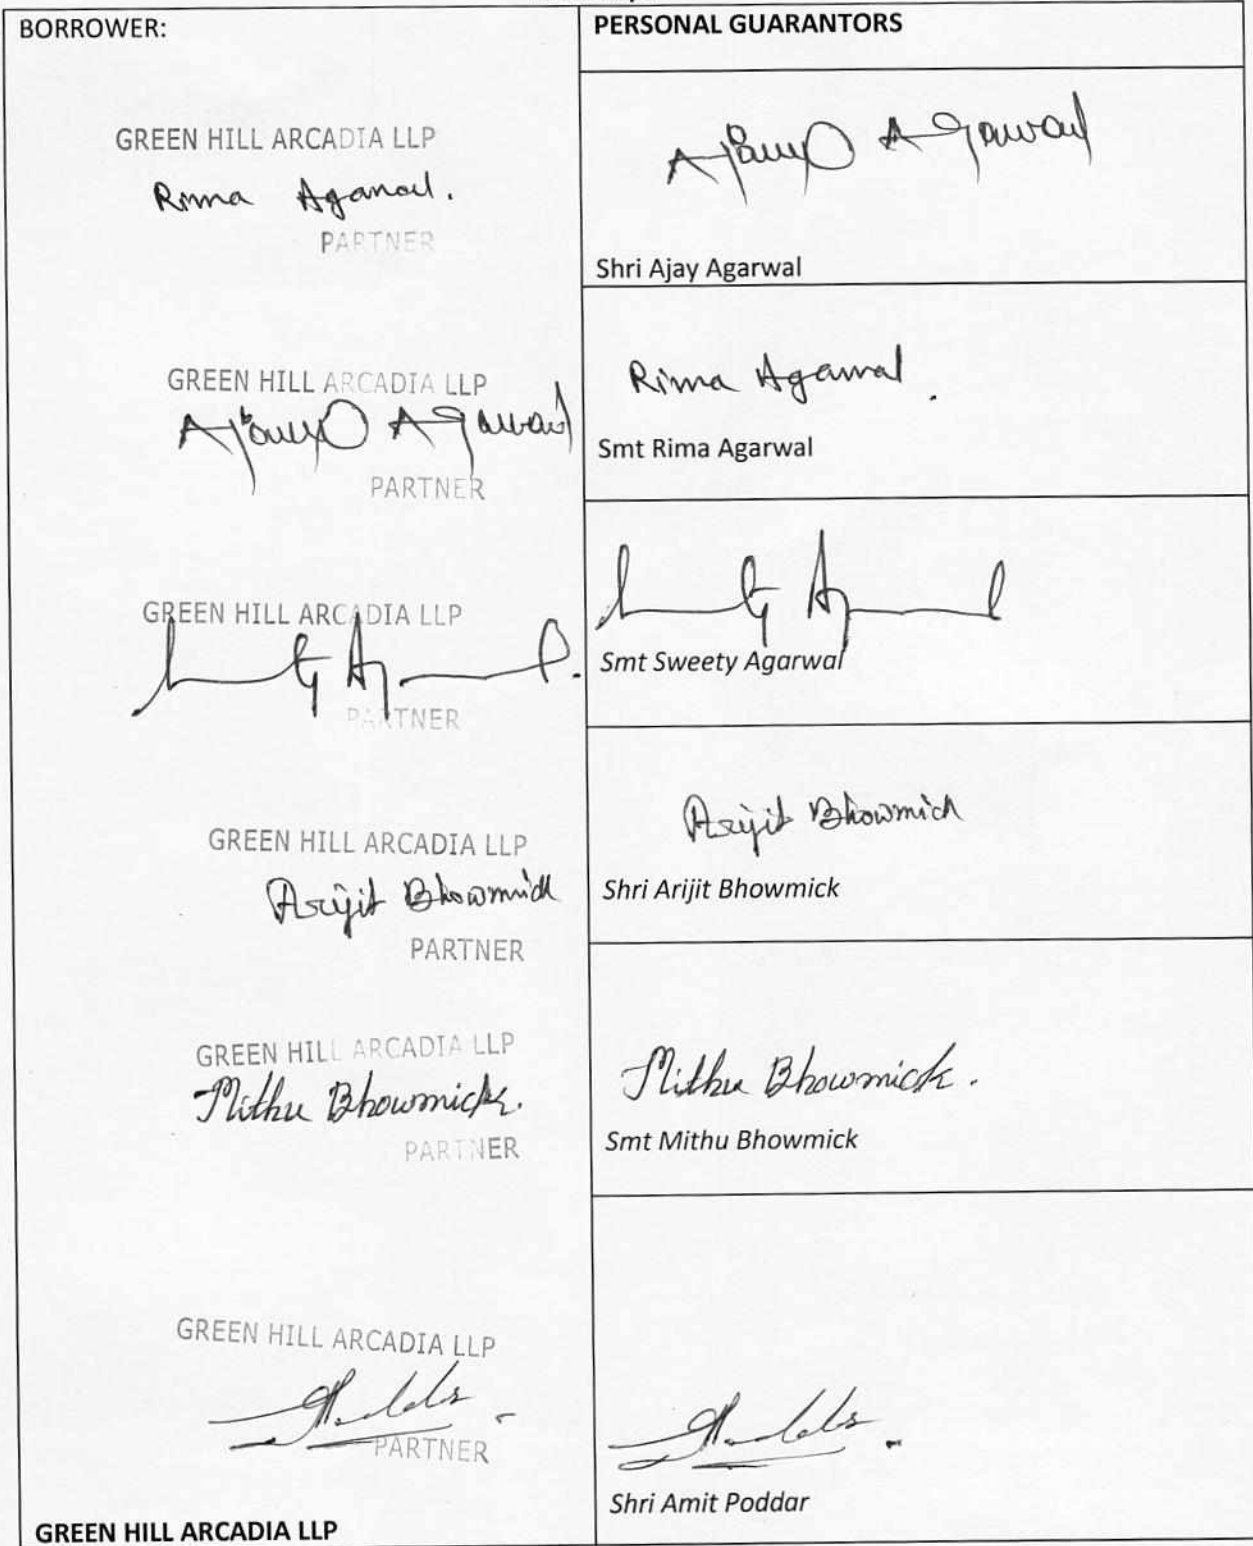 BORROWER:
GREEN HILL ARCADIA LLP
Rima Agarwal.
PARTNER
GREEN HILL ARCADIA LLP
Ajay Agarwal
PARTNER
GREEN HILL ARCADIA LLP
PARTNER
GREEN HILL ARCADIA LLP
Arijit Bhowmick
PARTNER
GREEN HILL ARCADIA LLP
Mithu Bhowmick.
PARTNER
GREEN HILL ARCADIA LLP
PARTNER
GREEN HILL ARCADIA LLP
PERSONAL GUARANTORS
Ajay Agarwal
Shri Ajay Agarwal
Rima Agarwal.
Smt Rima Agarwal
Smt Sweety Agarwal
Arijit Bhowmick
Shri Arijit Bhowmick
Mithu Bhowmick.
Smt Mithu Bhowmick
Shri Amit Poddar